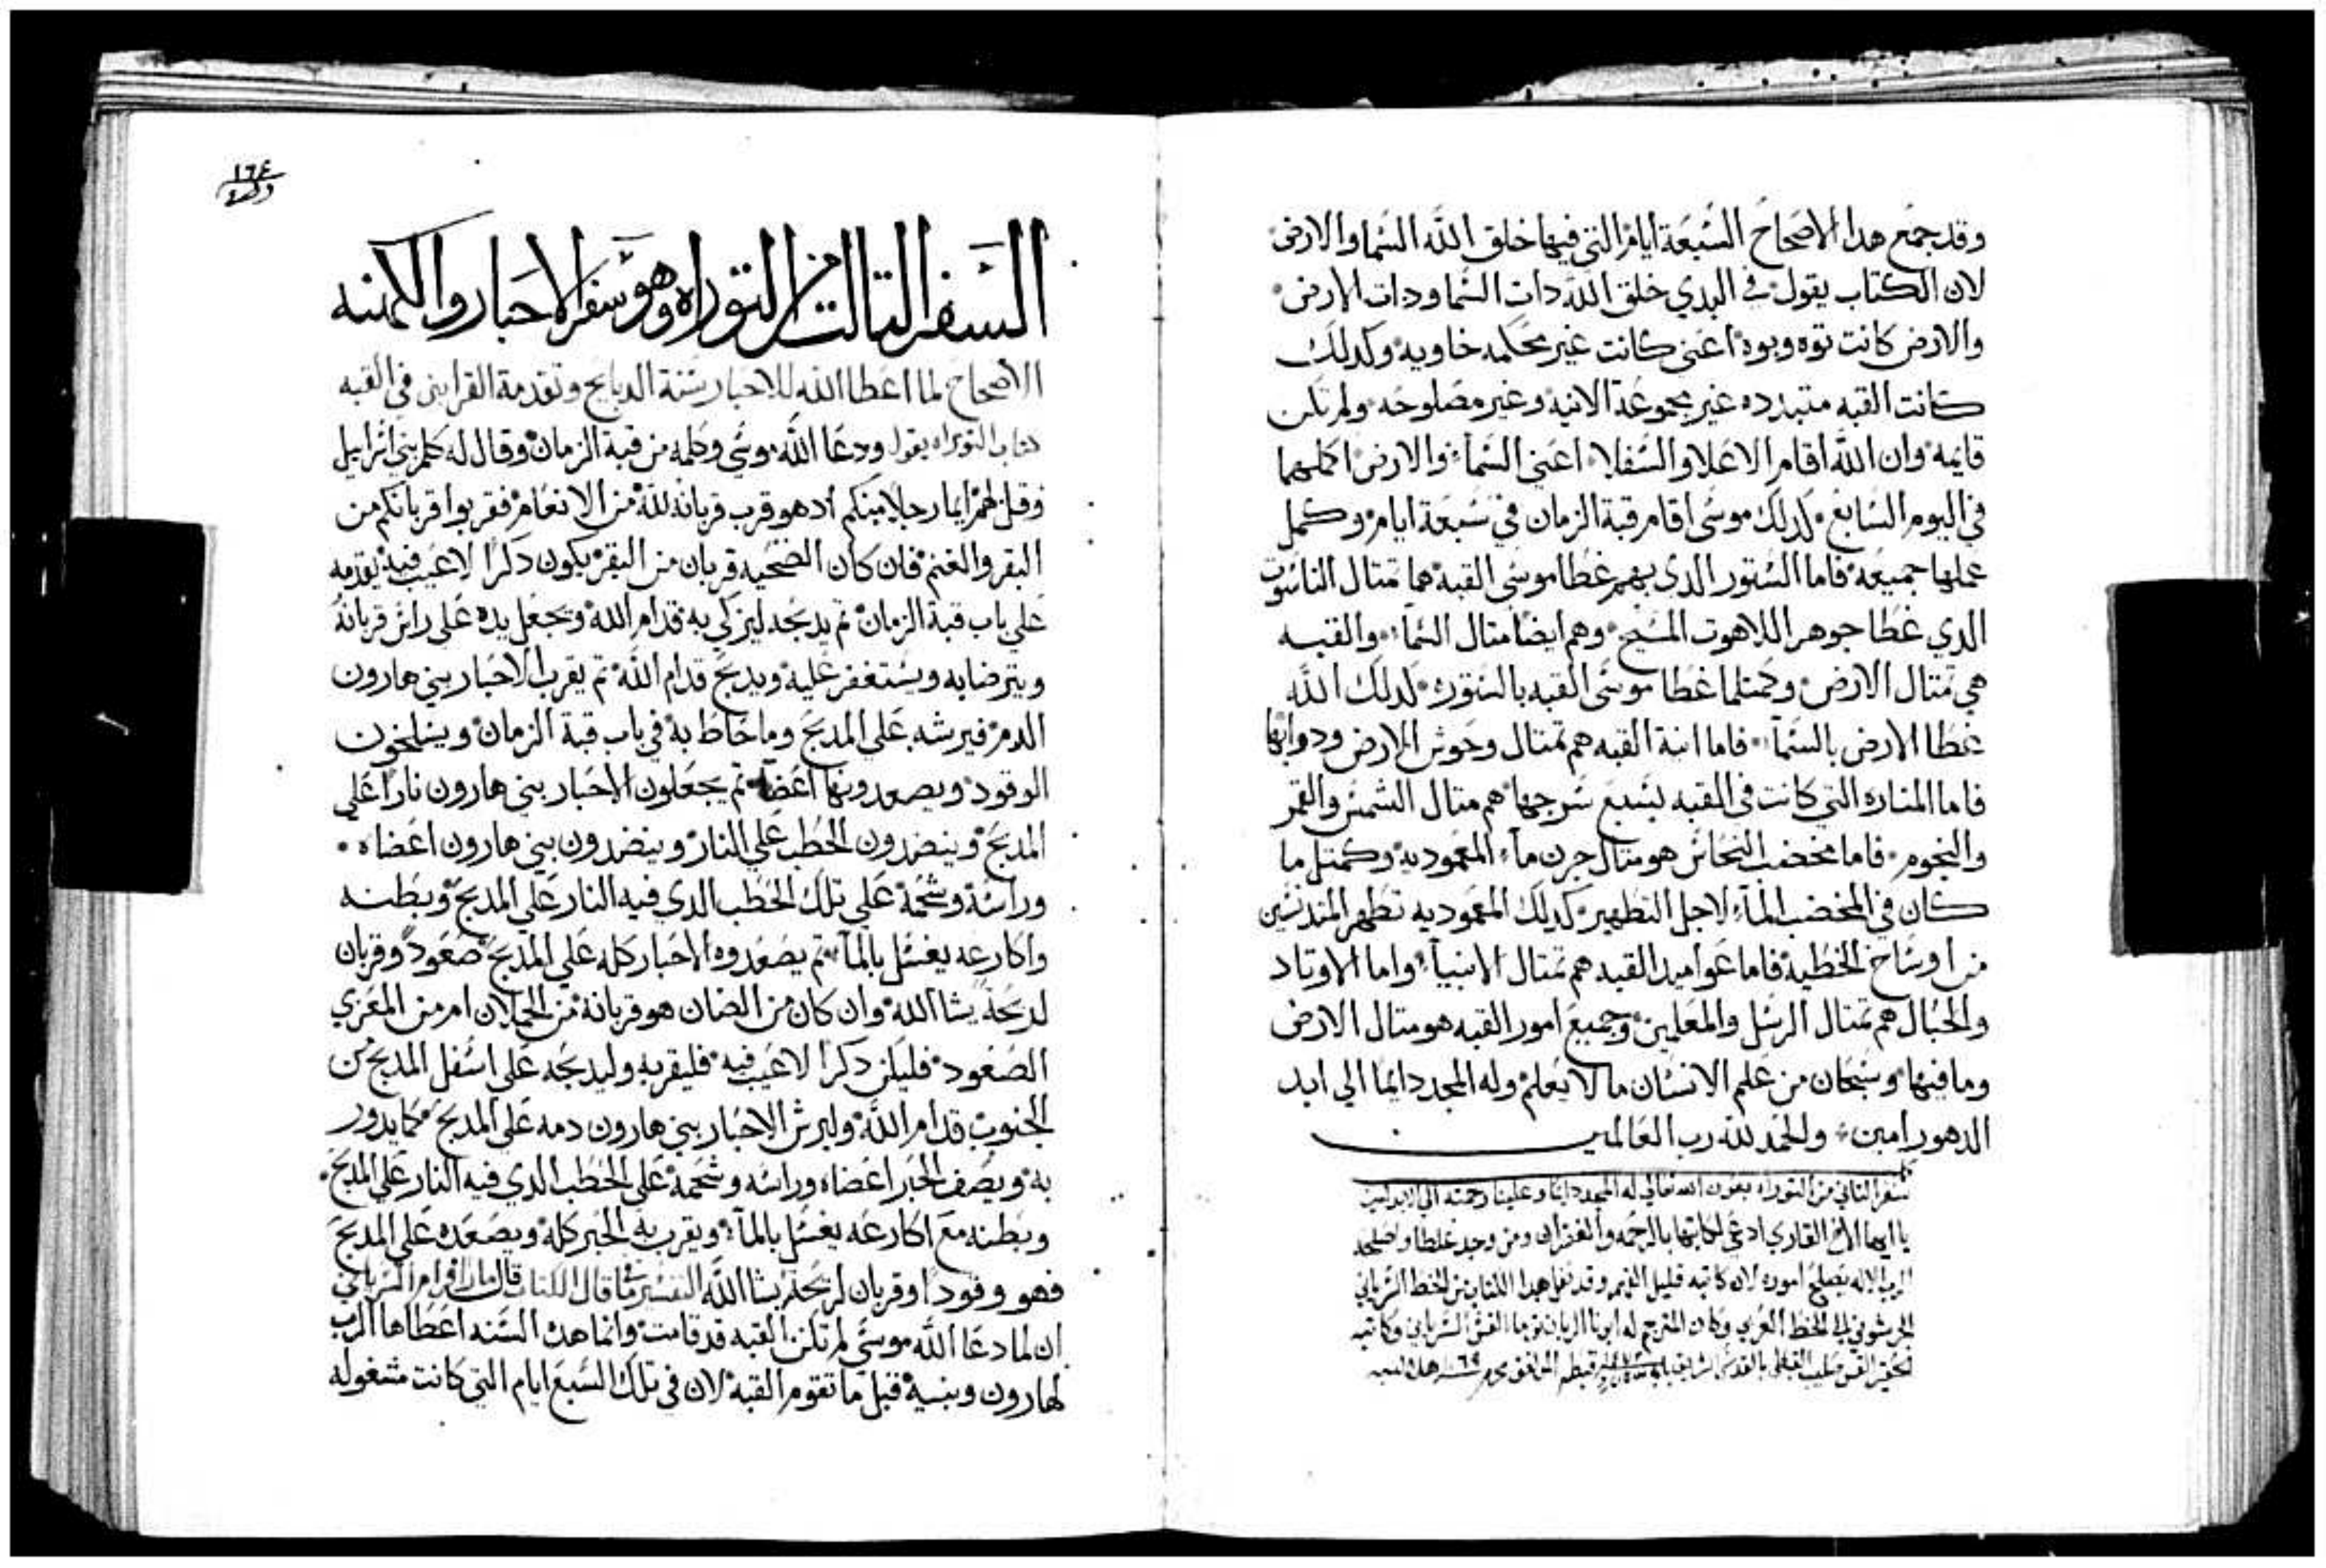 وقد جمع هدا الاصحاح السبعة ايام التي فيها خلق الله السما والارض
لان الكتاب يقول في البدي خلق الله دات السما ودات الارض
والارض كانت توه وبوه اعني كانت غير محكمه خاويه وكدلك
كانت القبه متبدده غير مجموعة الانيه وغير مصلوحه ولم تكن
قايمه وان الله اقام الاعلا والسفلا اعني السماء والارض اكملهما
في اليوم السابع كدلك موسى اقام قبة الزمان في سبعة ايام وكمل
عملها جميعه فاما الستور الدي بهم غطا موسى القبه هما تمتال الناسوت
الدي غطا جوهر اللاهوت المسيح وهم ايضا متال السماء والقبه
هي تمتال الارض وكمتلما غطا موسى القبه بالستوره كدلك الله
غطا الارض بالسماء فاما انية القبه هم تمتال وحوش الارض ودوابها
فاما المناره التي كانت في القبه بسبع سرجها هم متال الشمس والقمر
والنجوم فاما مخضب النحاس هو متال جرن ماء المعموديه وكمتل ما
كان في المخضب الماء لاجل التطهير كدلك المعموديه تطهر المتدنسين
من اوساخ الخطيه فاما عواميد القبه هم تمتال الانبياء واما الاوتاد
والحبال هم تمتال الرسل والمعلمين وجميع امور القبه هو متال الارض
وما فيها وسبحان من علم الانسان ما لا يعلم وله المجد دايما الي ابد
الدهور امين ولحمد لله رب العالمين
سفر التاني من التوراه بعون الله تعالي له المجد دايما وعلينا رحمته الي الابد امين
يا ايها الاخ القاري ادعي لكاتبها بالرحمه والغفران ومن وجد غلطا واصلحه
الرب الاله يصلح اموره لان كاتبه قليل الفهم وقد نقل هدا الكتاب من الخط السرياني
الجرشوني الي الخط العربي وكان المترجم له ابونا الربان توما القس السرياني وكاتبه
١٦٤
السفر التالت من التوراه وهو سفر الاحبار والكهنه
الاصحاح لما اعطا الله للاحبار سنة الدبايح وتقدمة القرابين في القبه
كتاب التوراه يقول ودعا الله موسى وكلمه من قبة الزمان وقال له كلم بني اسراييل
وقل لهم ايما رجلا منكم اد هو قرب قربانه لله من الانعام فقربوا قربانكم من
البقر والغنم فان كان الضحيه قربان من البقر يكون دكرا لا عيب فيه يقدمه
على باب قبة الزمان تم يدبحه ليزكي به قدام الله ويجعل يده على راس قربانه
ويترضا به ويستغفر عليه ويدبح قدام الله تم يقرب الاحبار بني هارون
الدم فيرشه على المدبح وما حاط به في باب قبة الزمان ويسلخون
الوقود ويصعدونها اعضاء تم يجعلون الاحبار بني هارون نارا على
المدبح وينضدون الحطب على النار وينضدون بني هارون اعضاه
وراسه وشحمه على تلك الحطب الدي فيه النار على المدبح وبطنه
واكارعه يغسل بالماء تم يصعدوه الاحبار كله على المدبح صعود وقربان
لديحة يشا الله وان كان من الضان هو قربانه من الحملان ام من المعزي
الصعود فليكن دكرا لا عيب فيه فليقربه وليدبحه على اسفل المدبح من
الجنوب قدام الله وليرش الاحبار بني هارون دمه على المدبح كما يدور
به ويصف الحبر اعضاه وراسه وشحمه على الحطب الدي فيه النار على المدبح
وبطنه مع اكارعه يغسل بالماء ويقرب به الحبر كله ويصعده على المدبح
فهو وقودا وقربان لريحة يشا الله التفسير ما قال الكتاب قال مار افرام السرياني
ان لما دعا الله موسى لم تكن القبه قد قامت وانما هده السنه اعطاها الرب
لهارون وبنيه قبل ما تقوم القبه لان في تلك السبع ايام التي كانت مشغوله